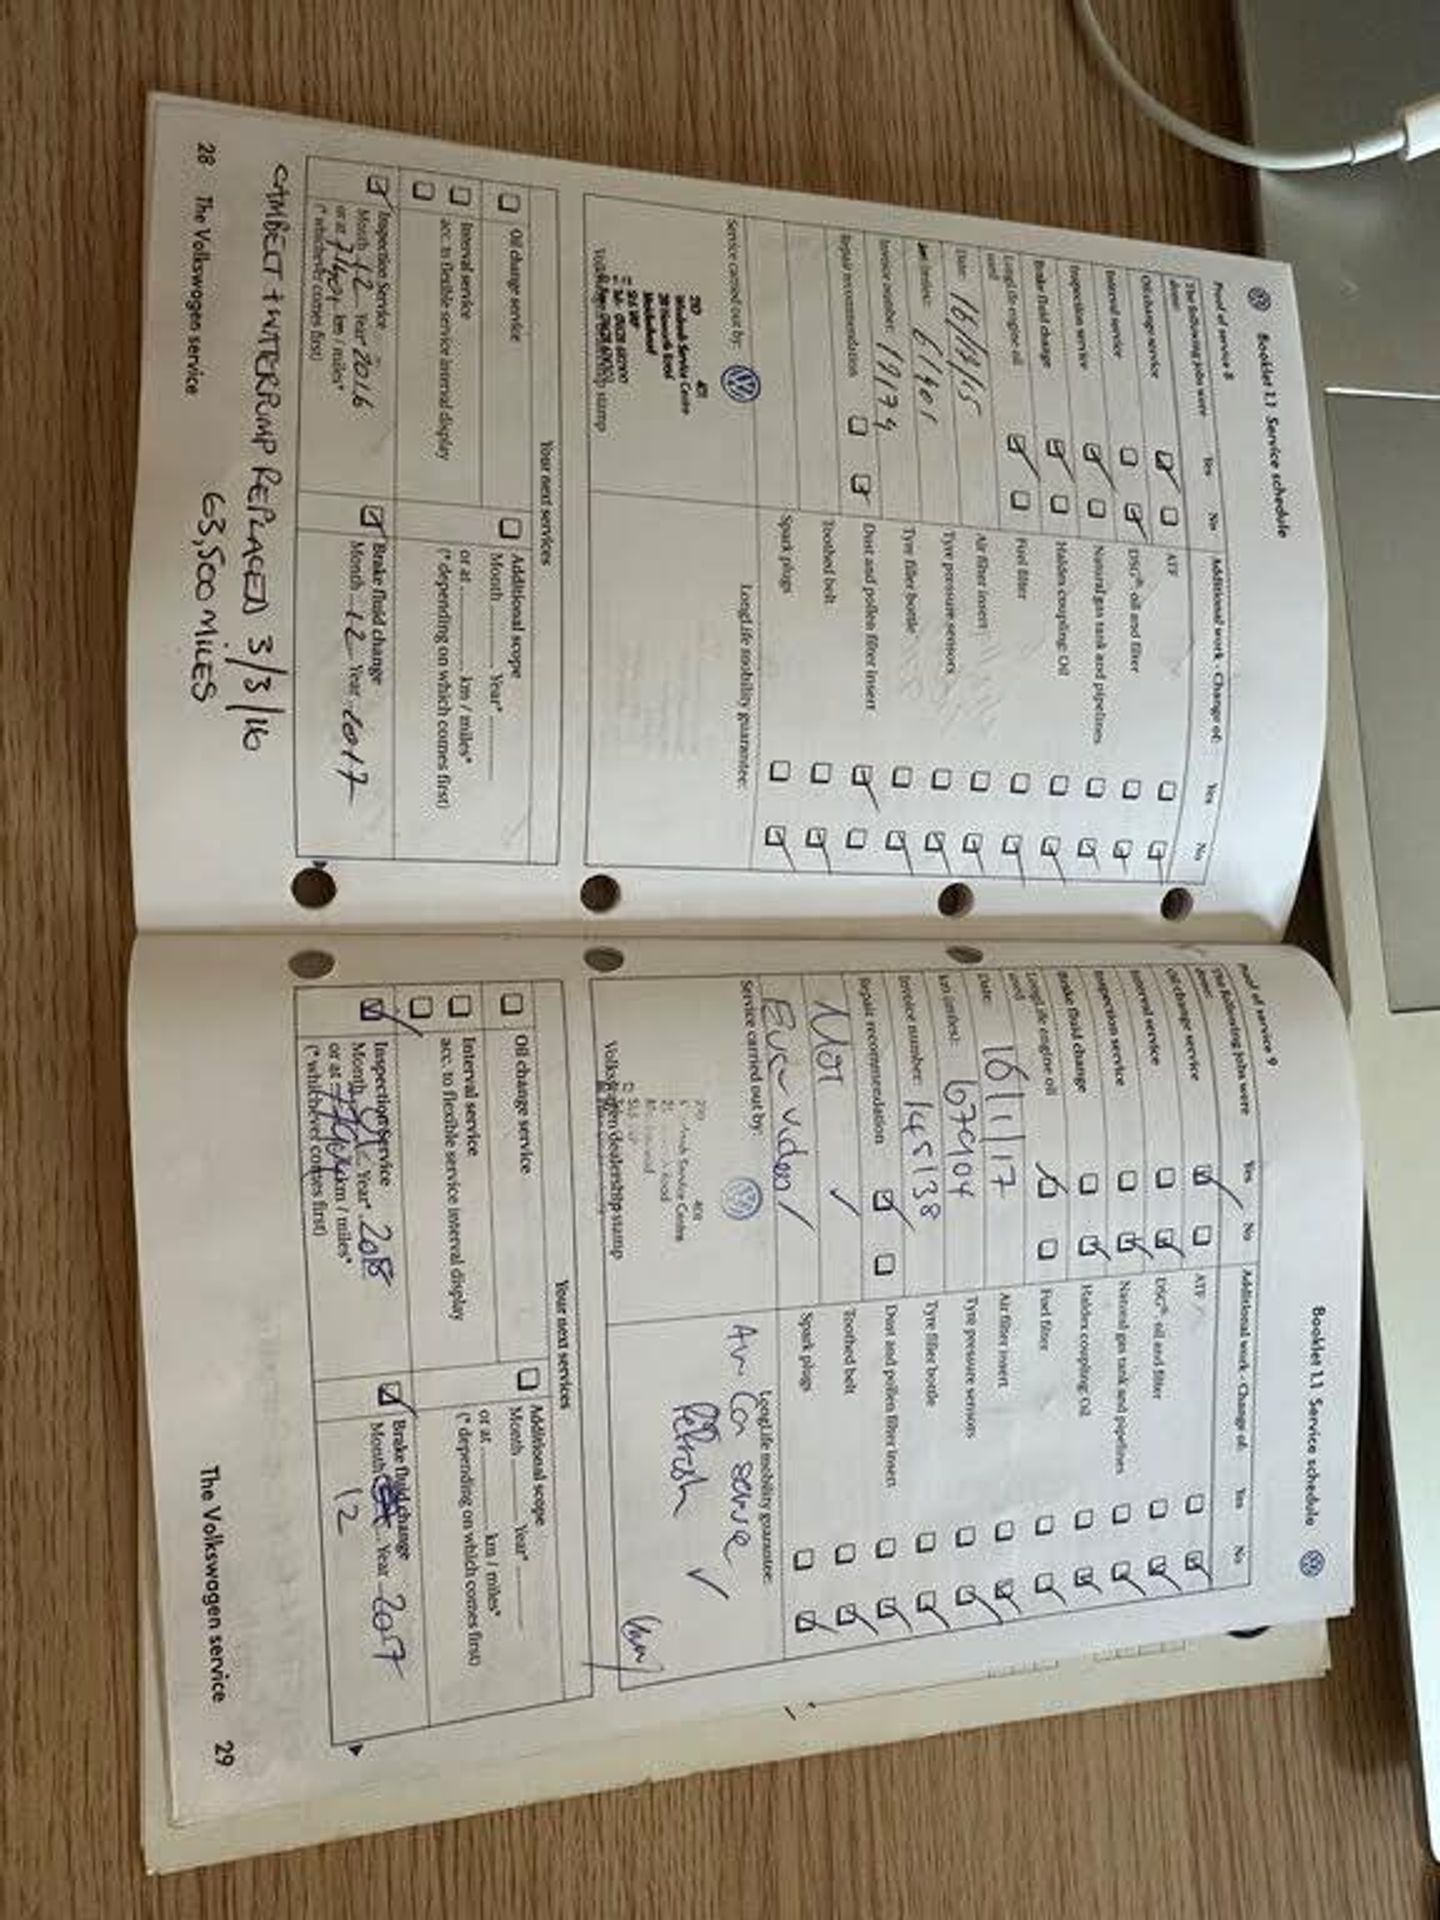 Booklet 1.1 Service schedule
Proof of service 8
The following jobs were done: Yes No
Oil change service
Interval service
Inspection service
Brake fluid change
LongLife engine oil used
Date: 16/12/15
km (miles): 61401
Invoice number:
Repair recommendation
Additional work - Change of: Yes No
ATF
DSG® oil and filter
Natural gas tank and pipelines
Haldex coupling: Oil
Fuel filter
Air filter insert
Tyre pressure sensors
Tyre filler bottle
Dust and pollen filter insert
Toothed belt
Spark plugs
Service carried out by:
Service Centre
stamp
LongLife mobility guarantee:
Your next services
Oil change service
Interval service
acc. to flexible service interval display
Additional scope
Month Year*
or at km / miles*
(* depending on which comes first)
Inspection Service
Month 12 Year 2016
or at 71401 km / miles*
(* whichever comes first)
Brake fluid change
Month 12 Year 2017
CAMBELT + WATERPUMP REPLACED 3/3/16
63,500 MILES
28 The Volkswagen service
Booklet 1.1 Service schedule
Proof of service 9
The following jobs were done: Yes No
Oil change service
Interval service
Inspection service
Brake fluid change
LongLife engine oil used
Date: 16/1/17
km (miles): 67904
Invoice number: 145138
Repair recommendation
MOT
Additional work - Change of: Yes No
ATF
DSG® oil and filter
Natural gas tank and pipelines
Haldex coupling: Oil
Fuel filter
Air filter insert
Tyre pressure sensors
Tyre filler bottle
Dust and pollen filter insert
Toothed belt
Spark plugs
Service carried out by:
Service Centre
Volkswagen dealership stamp
LongLife mobility guarantee:
Air Con
Your next services
Oil change service
Interval service
acc. to flexible service interval display
Additional scope
Month Year*
or at km / miles*
(* depending on which comes first)
Inspection service
Month Year* 2018
or at km / miles*
(* whichever comes first)
Brake fluid change
Month 12 Year 2017
The Volkswagen service 29